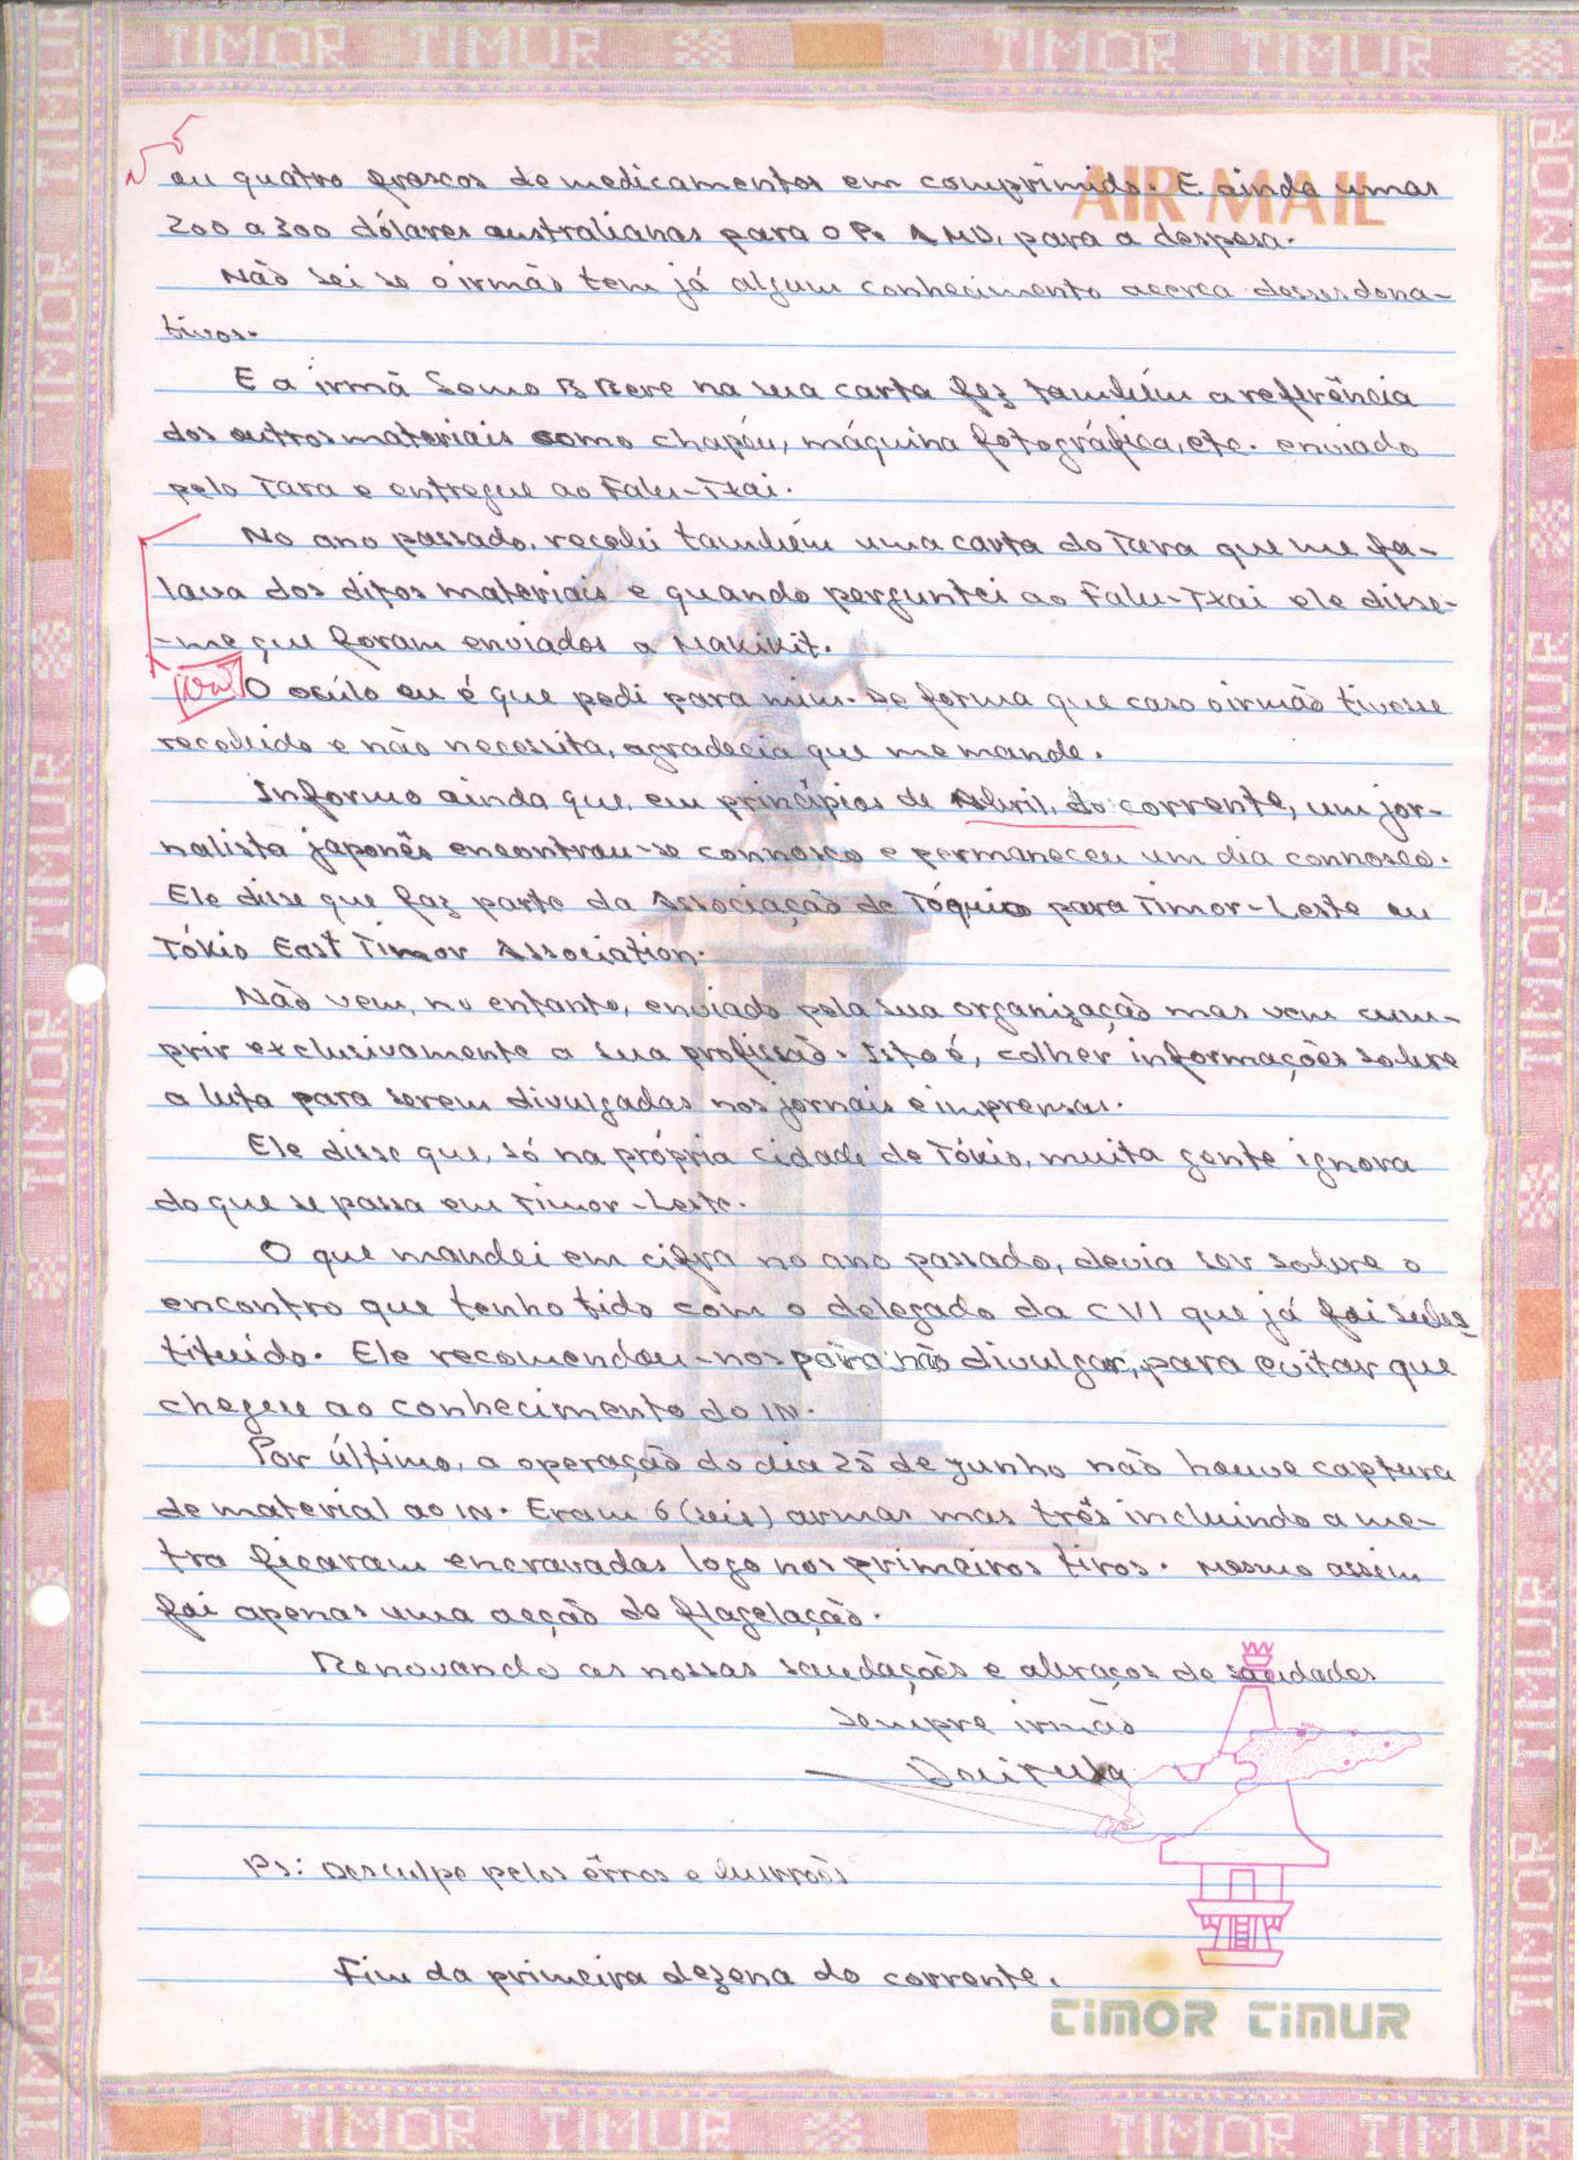 TIMOR TIMUR TIMOR TIMUR
AIR MAIL
ou quatro frascos de medicamentos em comprimido. E ainda umas
200 a 300 dólares australianas para o P. AMO, para a despesa.
Não sei se o irmão tem já algum conhecimento acerca desses dona-
tivos.
E a irmã Somo B Bere na sua carta fez também a referência
dos outros materiais como chapéu, máquina fotográfica, etc. enviado
pelo Tara e entregue ao Falu-Txai.
No ano passado, recebi também uma carta do Tara que me fa-
lava dos ditos materiais e quando perguntei ao Falu-Txai ele disse-
-me que foram enviados a Makikit.
O osúlo eu é que pedi para mim. De forma que caso o irmão tivesse
recebido e não necessita, agradecia que me mande.
Informo ainda que, em princípios de Abril, do corrente, um jor-
nalista japonês encontrou-se connosco e permaneceu um dia connosco.
Ele disse que faz parte da Associação de Tóquio para Timor-Leste ou
Tókio East Timor Association.
Não vem, no entanto, enviado pela sua organização mas vem cum-
prir exclusivamente a sua profissão. Isto é, colher informações sobre
a luta para serem divulgadas nos jornais e imprensas.
Ele disse que, só na própria cidade de Tókio, muita gente ignora
do que se passa em Timor-Leste.
O que mandei em cifra no ano passado, devia ser sobre o
encontro que tenho tido com o delegado da CVI que já foi subs
tituído. Ele recomendou-nos para não divulgar, para evitar que
chegue ao conhecimento do IN.
Por último, a operação do dia 25 de junho não houve captura
de material ao IN. Eram 6 (seis) armas mas três incluindo a me-
tra ficaram encravadas logo nos primeiros tiros. Mesmo assim
foi apenas uma acção de flagelação.
Renovando as nossas saudações e abraços de saudades
Sempre irmão
Ps: Desculpe pelos êrros e burrões
Fim da primeira dezena do corrente.
TIMOR TIMUR
TIMOR TIMUR TIMOR TIMUR